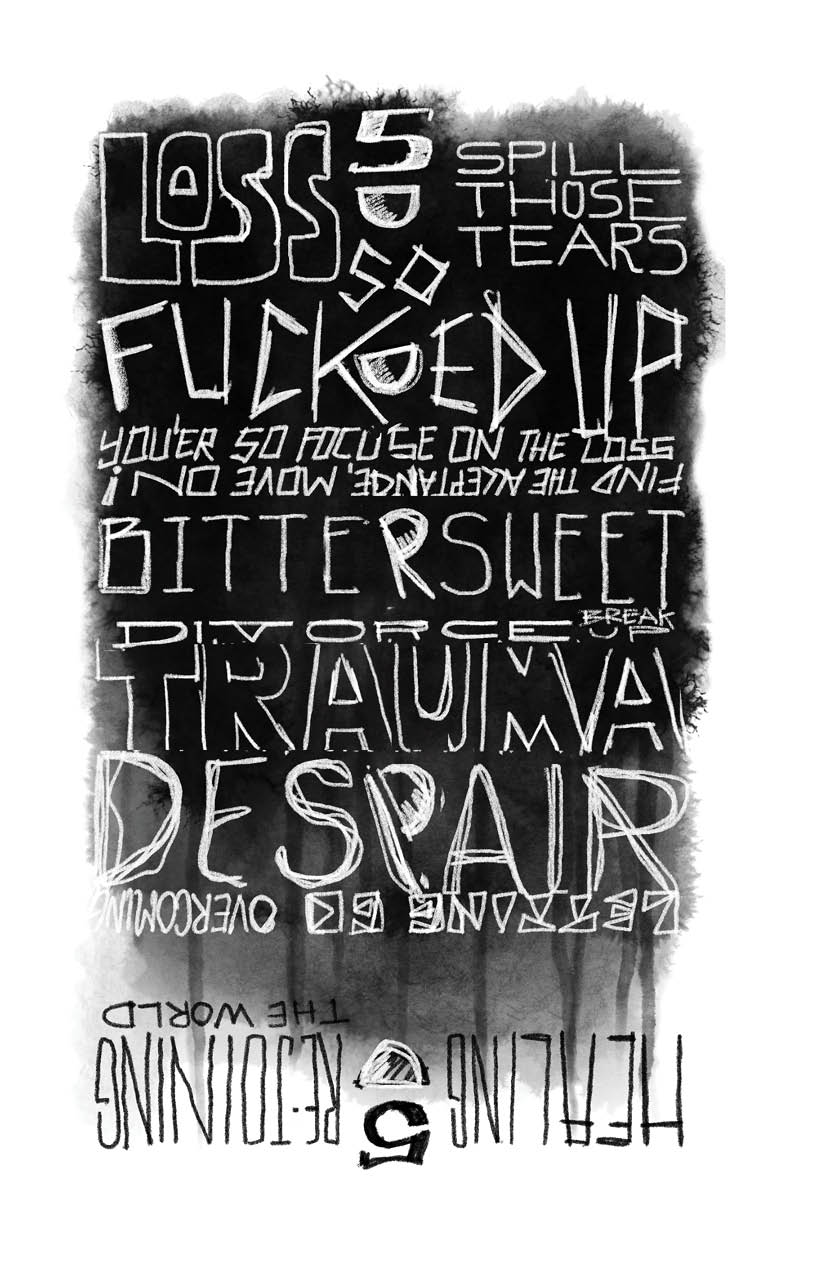 LOSS
5
SPILL
THOSE
TEARS
SO
FUCKED UP
YOU'ER SO FOCU'SE ON THE LOSS
FIND THE ACCEPTANCE, MOVE ON!
BITTERSWEET
DIVORCE
BREAK
UP
TRAUMA
DESPAIR
LETTING GO OVERCOMING
HEALING
5
RE-JOINING
THE WORLD